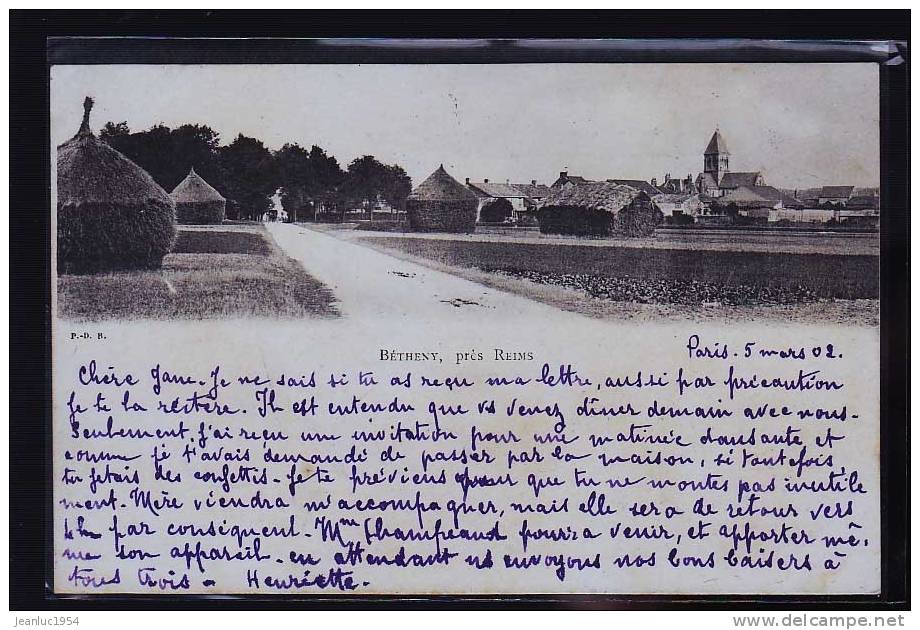 P.-D. R.
BÉTHENY, près REIMS
Paris. 5 mars 02.
Chère Jane. Je ne sais si tu as reçu ma lettre, aussi par précaution
je te la réitère. Il est entendu que vs venez dîner demain avec nous.
Seulement, j'ai reçu une invitation pour une matinée dansante et
comme je t'avais demandé de passer par la maison, si toutefois,
tu jetais des confettis. Je te préviens pour que tu ne montes pas inutile
ment. Mère viendra m'accompagner, mais elle sera de retour vers
4h par conséquent. Mme pourra venir, et apporter mê-
me son appareil. en attendant ns envoyons nos bons baisers à
tous trois - Henriette.
jeanluc1954
www.delcampe.net